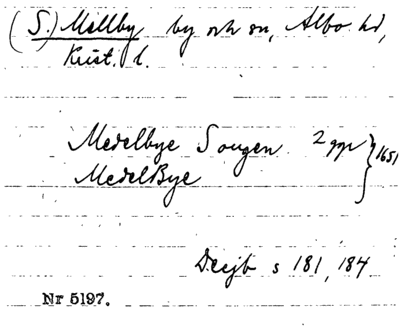 (S.) Mellby by och sn, Albo hd,
Krist. l.
Medelbye Sougen 2 ggr } 1651
MedelBye
Decjb s 181, 184
Nr 5197.